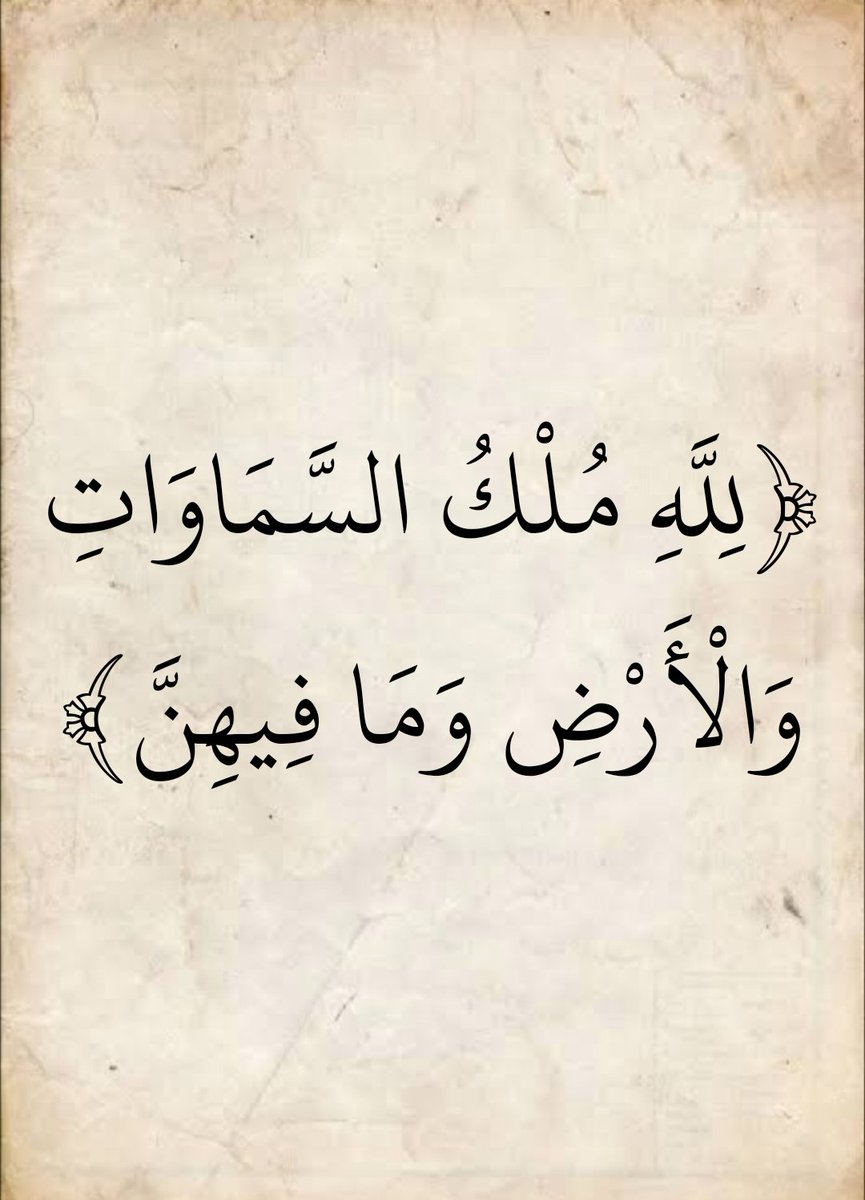 ﴿لِلَّهِ مُلْكُ السَّمَاوَاتِ
وَالْأَرْضِ وَمَا فِيهِنَّ﴾